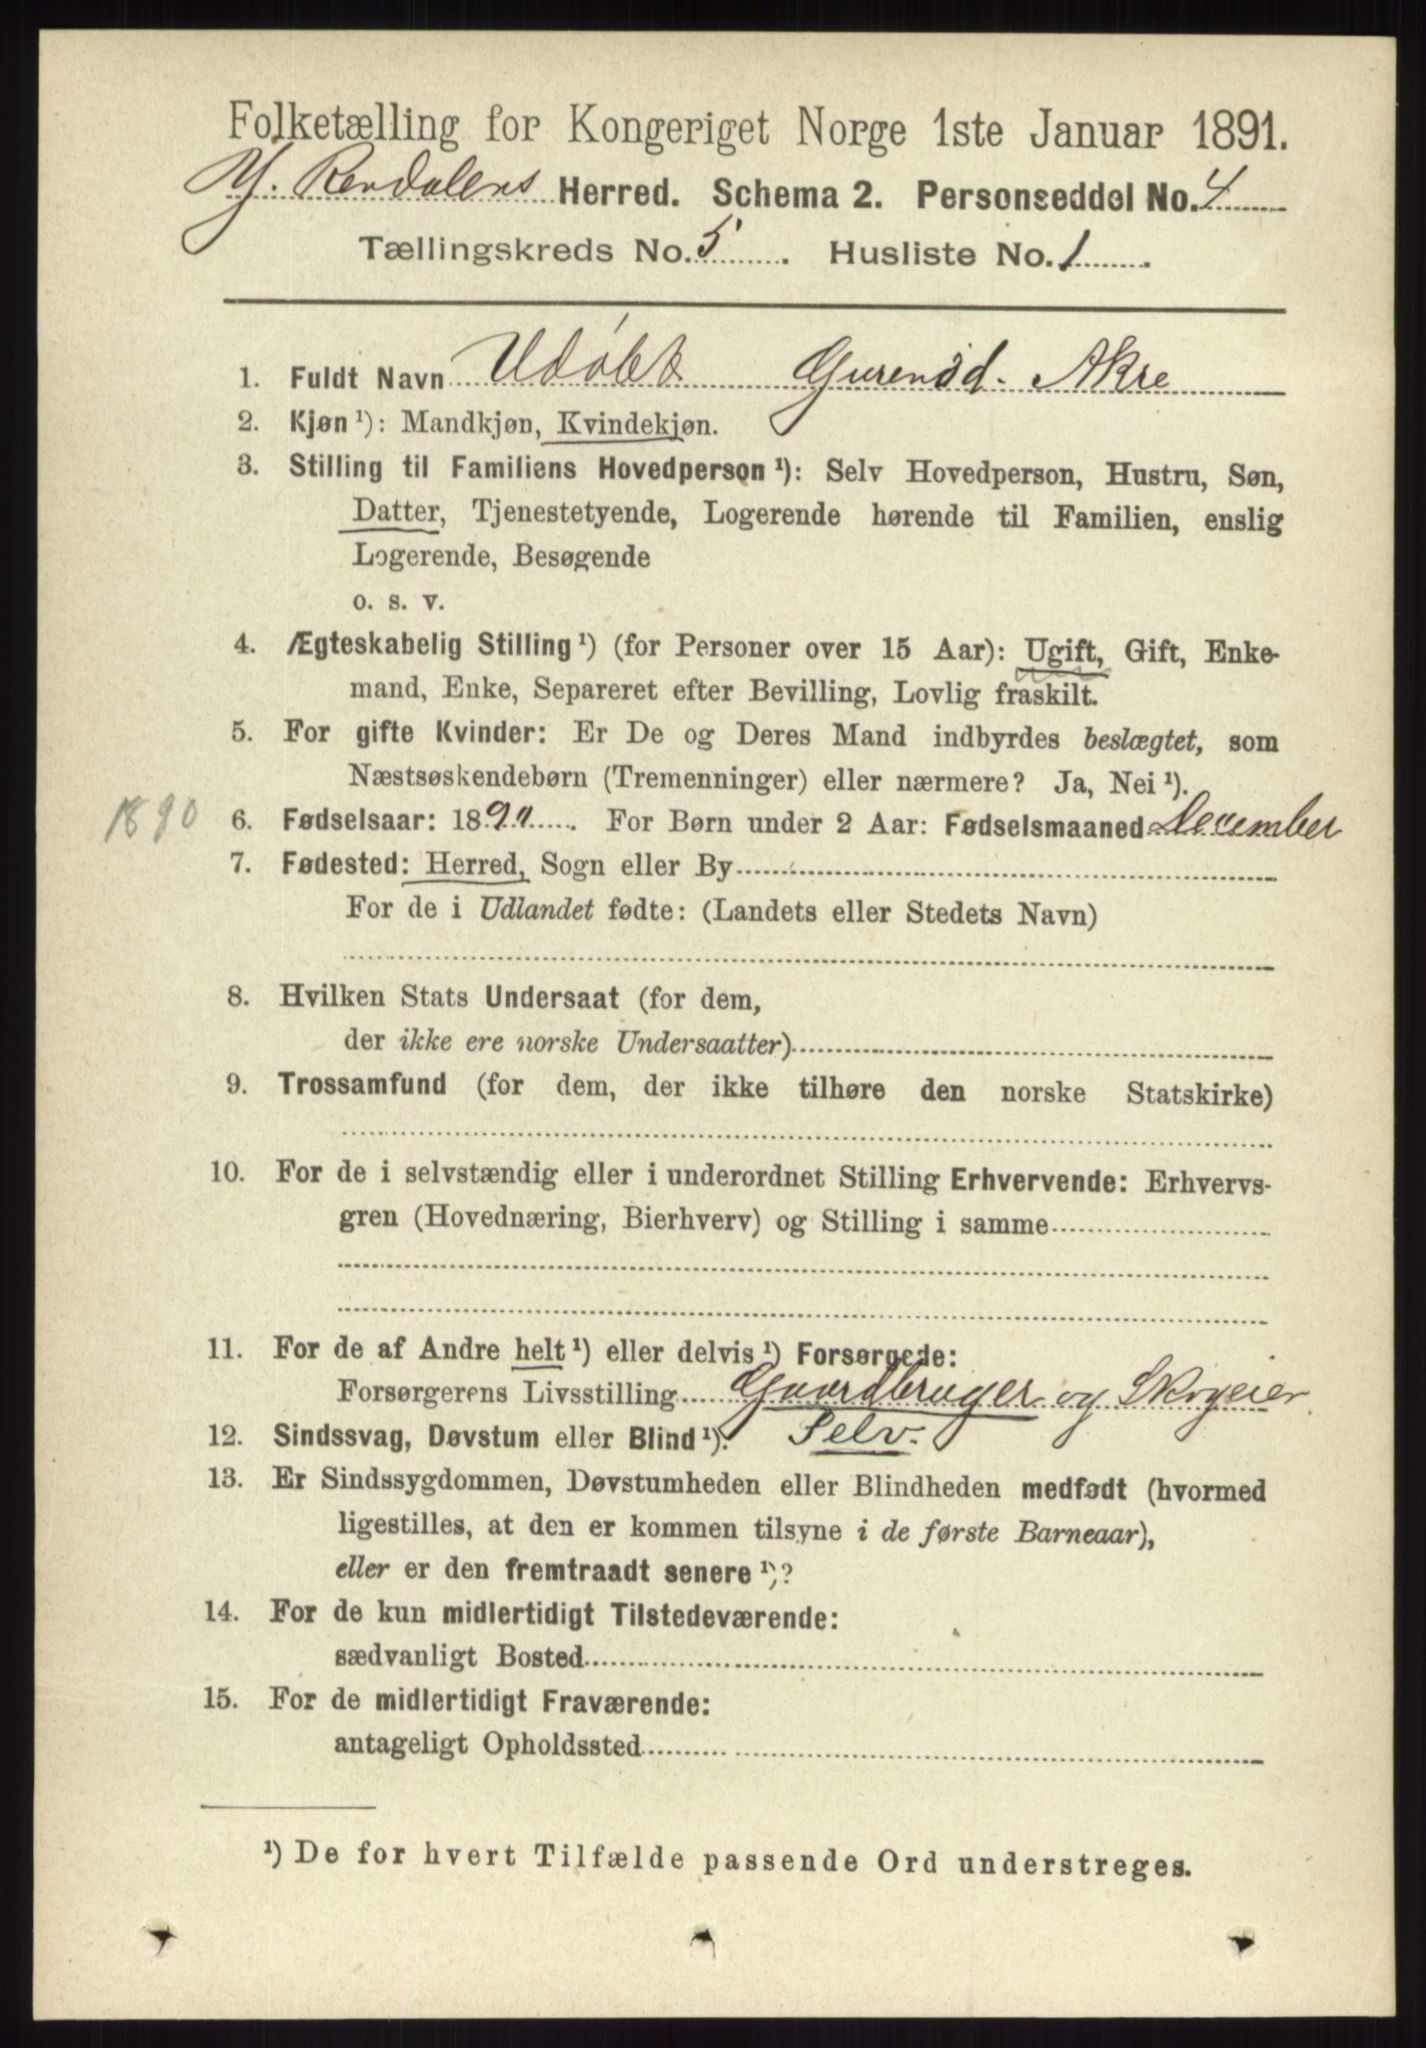 Folketælling for Kongeriget Norge 1ste Januar 1891.
Y. Rendalens Herred. Schema 2. Personseddel No. 4
Tællingskreds No. 5. Husliste No. 1.
1. Fuldt Navn Udøbt Gurensd. Akre
2. Kjøn ¹): Mandkjøn, Kvindekjøn.
3. Stilling til Familiens Hovedperson ¹): Selv Hovedperson, Hustru, Søn,
Datter, Tjenestetyende, Logerende hørende til Familien, enslig
Logerende, Besøgende
o. s. v.
4. Ægteskabelig Stilling ¹) (for Personer over 15 Aar): Ugift, Gift, Enke-
mand, Enke, Separeret efter Bevilling, Lovlig fraskilt.
5. For gifte Kvinder: Er De og Deres Mand indbyrdes beslægtet, som
Næstsøskendebørn (Tremenninger) eller nærmere? Ja, Nei ¹).
1890 6. Fødselsaar: 1890. For Børn under 2 Aar: Fødselsmaaned December
7. Fødested: Herred, Sogn eller By
For de i Udlandet fødte: (Landets eller Stedets Navn)
8. Hvilken Stats Undersaat (for dem,
der ikke ere norske Undersaatter)
9. Trossamfund (for dem, der ikke tilhøre den norske Statskirke)
10. For de i selvstændig eller i underordnet Stilling Erhvervende: Erhvervs-
gren (Hovednæring, Bierhverv) og Stilling i samme
11. For de af Andre helt ¹) eller delvis ¹) Forsørgede:
Forsørgerens Livsstilling Gaardbruger og Skogeier
12. Sindssvag, Døvstum eller Blind ¹). Selv.
13. Er Sindssygdommen, Døvstumheden eller Blindheden medfødt (hvormed
ligestilles, at den er kommen tilsyne i de første Barneaar),
eller er den fremtraadt senere ¹)?
14. For de kun midlertidigt Tilstedeværende:
sædvanligt Bosted
15. For de midlertidigt Fraværende:
antageligt Opholdssted
¹) De for hvert Tilfælde passende Ord understreges.